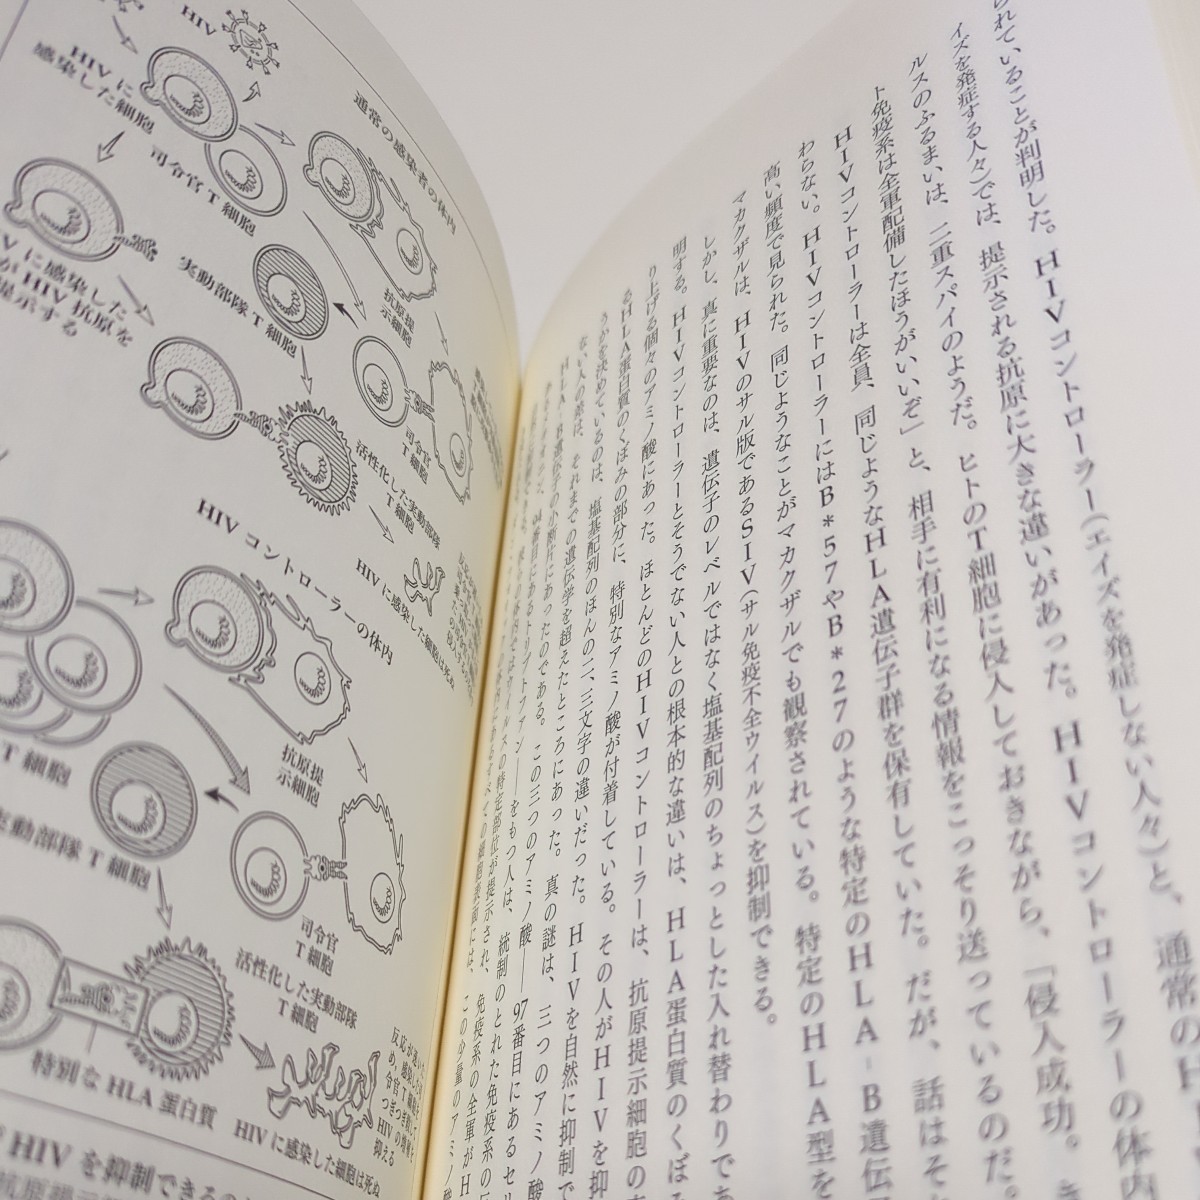 られていることが判明した。HIVコントローラー(エイズを発症しない人々)と、通常のH
イズを発症する人々)では、提示される抗原に大きな違いがあった。HIVコントローラーの体内
ルスのふるまいは、二重スパイのようだ。ヒトのT細胞に侵入しておきながら、「侵入成功。
ト免疫系は全軍配備したほうがいいぞ」と、相手に有利になる情報をこっそり送っているのだ。
HIVコントローラーは全員、同じようなHLA遺伝子群を保有していた。だが、話はそ
わらない。HIVコントローラーにはB*57やB*27のような特定のHLA-B遺伝
高い頻度で見られた。同じようなことがマカクザルでも観察されている。特定のHLA型を
マカクザルは、HIVのサル版であるSIV(サル免疫不全ウイルス)を抑制できる。
しかし、真に重要なのは、遺伝子のレベルではなく塩基配列のちょっとした入れ替わりであ
明する。HIVコントローラーとそうでない人との根本的な違いは、HLA蛋白質のくぼ
り上げる個々のアミノ酸にあった。ほとんどのHIVコントローラーは、抗原提示細胞の
るHLA蛋白質のくぼみの部分に、特別なアミノ酸が付着している。その人がHIVを抑
うかを決めているのは、塩基配列のほんの二、三文字の違いだった。HIVを自然に抑制で
ない人の差は、それまでの遺伝学を超えたところにあった。真の謎は、三つのアミノ
HLA-B遺伝子の小断片にあったのである。この三つのアミノ酸――97番目にあるセリ
94番目にあるトリプトファン――をもつ人は、統制のとれた免疫系の
ウイルスの特定部位が提示され、免疫系の全軍がH
細胞表面には、この少量のアミノ
HIV
HIVに
感染した細胞
司令官T細胞
通常の感染者の体内
抗原提
示細胞
Vに感染した
がHIV抗原を
提示する
実動部隊T細胞
司令官
T細胞
活性化した実動部隊
T細胞
HIVに感染した細胞は死ぬ
HIVコントローラーの体内
T細胞
抗原提
示細胞
実動部隊T細胞
司令官
T細胞
活性化した実動部隊
T細胞
特別なHLA蛋白質
HIVに感染した細胞は死ぬ
HIVを抑制できるの
抗原提示